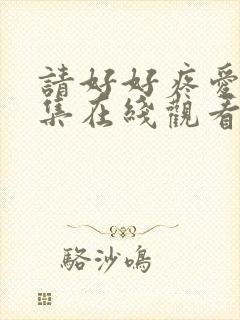 請好好疼愛
集在綫觀看
駱沙鳴